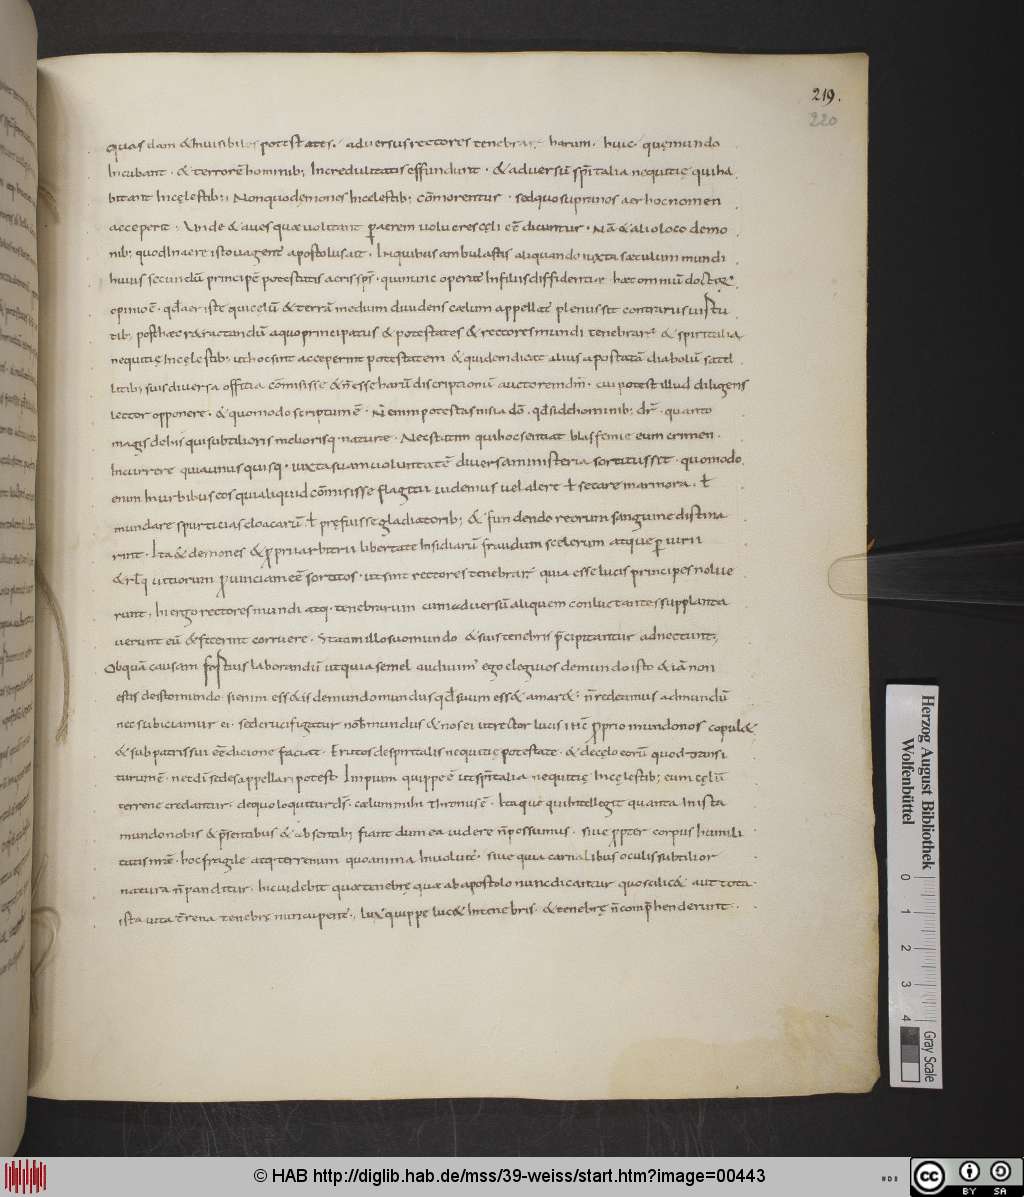 219.
220
quasdam & Inuisibiles potestates. aduersus rectores tenebrarum harum. huic quę mundo
Incubant. & terrorē hominib; Incredulitatis effundunt. & aduersū sp̄italia nequitię qui ha
bitant Incęlestib; Non quo demones Incęlestib; cōmorentur. sed quo supra nos aer hoc nomen
acceperit. Unde & aues quae uolitant p aerem uolucres cęli eē dicuntur. Nā & alio loco demo
nib; quod In aere isto uagent apostolus ait. In quibus ambulastis aliquando iuxta saeculum mundi
huius secundū principē potestatis aeris sp̄s. qui nunc operat In filiis diffidentiae haec omniū doctorum
opinio ē. qđ aer iste qui cęlū & terrā medium diuidens caelum appellat plenus sit contrariis uirtu
tib; post haec retractandū a quo principatus & potestates & rectores mundi tenebrarum & spiritalia
nequitię Incęlestib; ut hoc sint acceperint potestatem & quidem dicat alius apostatā diabolū satel
litib; suis diuersa officia cōmisisse & n̄ esse harū discriptionū auctorem dn̄m. cui potest illud diligens
lector opponere. & quomodo scriptum ē. N̄ enim potestas nisi a dō. qđ si de hominib; dr̄. quanto
magis de his qui subtilioris meliorisq. naturae. Nec statim qui hoc sentiat blasfemie eum crimen
Incurrere quia unus quisq. iuxta suam uoluntatē diuersa ministeria sortitus sit. quomodo
enim In urbibus eos qui aliquid cōmisisse flagitii uidemus uel alere ł secare marmora. ł
mundare spurticias cloacarū. ł pręfuisse gladiatorib; & fundendo reorum sanguine distina
rint. Ita & demones & p propriū arbitrii libertate Insidiarū fraudium scelerum atque periurii
& relq uitiorum prouinciam eē sortitos. ut sint rectores tenebrarum quia esse lucis principes nolue
runt, hi ergo rectores mundi atq. tenebrarum cum aduersū aliquem conluctantes supplanta
uerunt eū & fecerint corruere. Statim illo suo mundo & suis tenebris pcipitantur adnectunt;
Ob quā causam fortius laborandū ut quia semel audiuim ego elegi uos de mundo isto & iā non
estis de isto mundo. si enim ess&is de mundo mundus qđ suum ess& amar&. n̄ redeamus ad mundū
nec subiciamur ei. sed crucifigatur nob mundus & nos ei ut rector lucis IHC p proprio mundo nos copul&
& sub patris sui eē dicione faciat. Erutos de sp̄italis nequitię potestate. & de cęlo eorū quod transi
turum ē. nec dū sedes appellari potest Impium quippe ē ut sp̄italia nequitię Incęlestib; eum cęlū
terrene credantur. de quo loquitur dn̄s. caelum mihi thronus ē. Itaque qui Intellegit quanta In ista
mundo nobis & p̄sentibus & absentib; fiant dum ea uidere n̄ possumus. siue p̄pter corpus humili
tatis nr̄ae. hoc fragile atq. terrenum quo anima Inuoluit. siue quia carnalibus oculis subtilior
natura n̄ panditur. hic uidebit quae tenebrę quae ab apostolo nunc dicantur quo scilic& aut tota
ista uita terrena tenebrę nuncupent., lux quippe luc& In tenebris. & tenebrę n̄ comp̄henderunt.
Herzog August Bibliothek
Wolfenbüttel
0 1 2 3 4
Gray Scale
© HAB http://diglib.hab.de/mss/39-weiss/start.htm?image=00443
cc BY SA